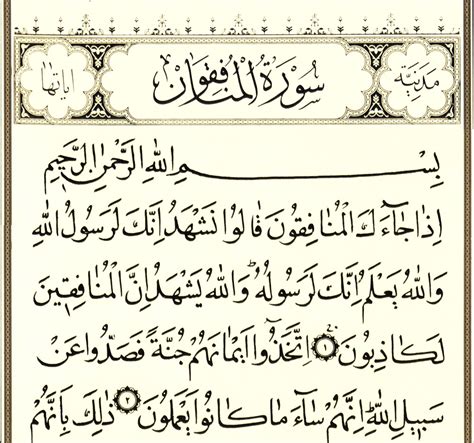 مدنية سورة المنافقون اياتها
بسم الله الرحمن الرحيم
اِذَا جَاءَكَ الْمُنَافِقُونَ قَالُوا نَشْهَدُ اِنَّكَ لَرَسُولُ اللهِ
وَاللهُ يَعْلَمُ اِنَّكَ لَرَسُولُهُ وَاللهُ يَشْهَدُ اِنَّ الْمُنَافِقِينَ
لَكَاذِبُونَ ١ اِتَّخَذُوا اَيْمَانَهُمْ جُنَّةً فَصَدُّوا عَنْ
سَبِيلِ اللهِ اِنَّهُمْ سَاءَ مَا كَانُوا يَعْمَلُونَ ٢ ذٰلِكَ بِاَنَّهُمْ